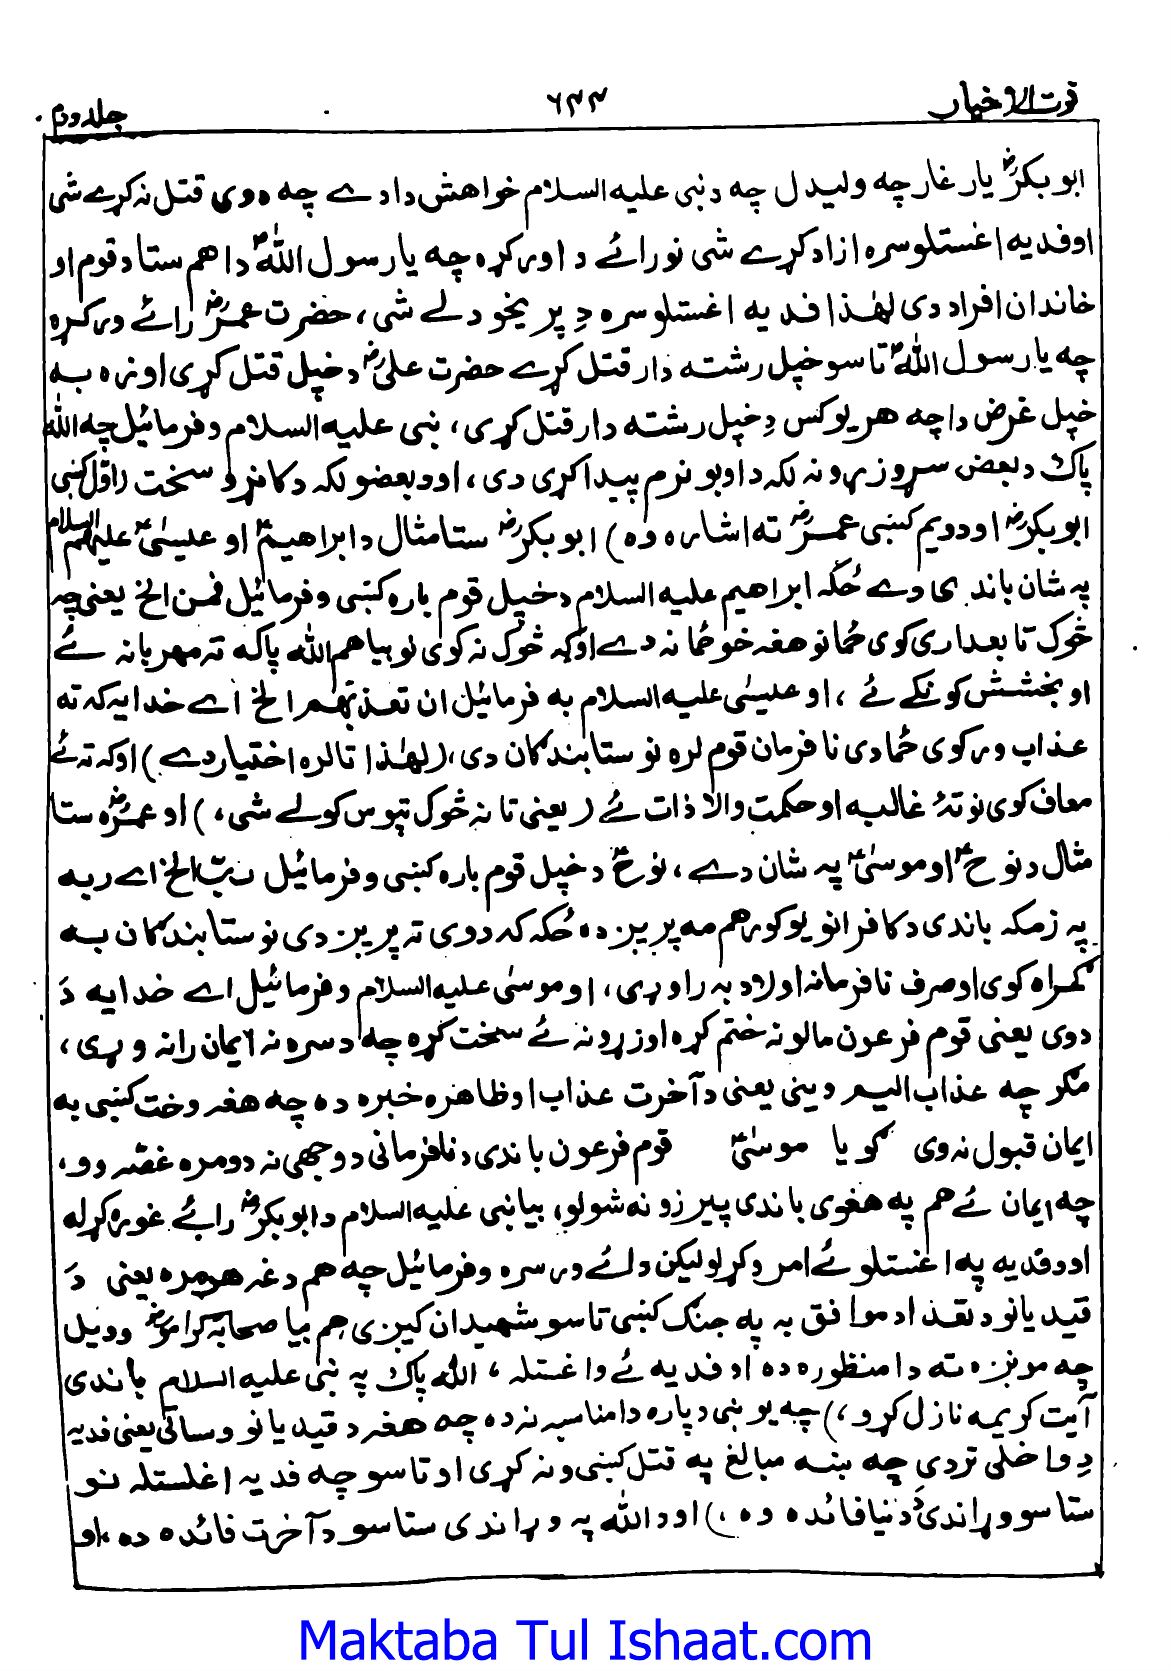 قوت الاخیار ۶۴۴ جلد دوم
ابوبکرؓ یار غار چه ولیدل چه د نبی علیه السلام خواهش دا دے چه دوی قتل نه کړے شی
او فدیه اغستلو سره ازاد کړے شی نو رائے د اوړکړه چه یا رسول اللهؐ دا هم ستا د قوم او
خاندان افراد دی لهٰذا فدیه اغستلو سره دِ پریخودلے شی، حضرت عمرؓ رائے ورکړه
چه یا رسول اللهؐ تاسو خپل رشته دار قتل کړے حضرت علیؓ دِ خپل قتل کړی او زه به
خپل غرض دا چه هر یو کس دِ خپل رشته دار قتل کړی، نبی علیه السلام وفرمائیل چه الله
پاک د بعض سړو زړونه لکه د اوبو نرم پیدا کړی دی، او د بعضو لکه د کانړو سخت راول کښی
ابوبکرؓ او دویم کښی عمرؓ ته اشاره وه) ابوبکرؓ ستا مثال د ابراهیمؑ او عیسیٰؑ علیهم السلام
په شان باندی دے ځکه ابراهیم علیه السلام دخپل قوم باره کښی وفرمائیل فمن الخ یعنی چه
څوک تابعداری کوی ځما نو هغه خو ځما نه دے او که څوک نه کوی نو بیا هم الله پاکه ته مهربانه ئے
او بخشش کونکے ئے، او عیسیٰ علیه السلام به فرمائیل ان تعذبهم الخ اے خدایه که ته
عذاب ورکوی ځما دی نافرمان قوم لره نو ستا بندگان دی، (لهٰذا تا لره اختیار دے) او که ته ئے
معاف کوی نو تهٔ غالبه او حکمت والا ذات ئے (یعنی تا نه څوک تپوس کولے شی،) او عمرؓه ستا
مثال د نوحؑ او موسیٰؑ په شان دے، نوحؑ دخپل قوم باره کښی وفرمائیل ربّ الخ اے ربه
په زمکه باندی د کافرانو یو کور هم مه پریږده ځکه که دوی ته پریږدی نو ستا بندگان به
گمراه کوی او صرف نافرمانه اولاد به راوړی، او موسیٰ علیه السلام وفرمائیل اے خدایه دَ
دوی یعنی قوم فرعون مالونه ختم کړه او زړونه ئے سخت کړه چه د سره نه ایمان رانه وړی،
مگر چه عذاب الیم وینی یعنی د آخرت عذاب او ظاهره خبره ده چه هغه وخت کښی به
ایمان قبول نه وی گویا موسیٰؑ قوم فرعون باندی د نافرمانی د وجهی نه دومره غصه وو،
چه ایمان ئے هم په هغوی باندی پیرزو نه شولو، بیا نبی علیه السلام د ابوبکرؓ رائے غوره کړله
او د فدیه په اغستلو ئے امر وکړلو لیکن ولے ورسره وفرمائیل چه هم دغه هومره یعنی دَ
قیدیانو د تعداد موافق به په جنگ کښی تاسو شهیدان کیږی هم بیا صحابه کرامؓ وویل
چه مونږه ته دا منظوره ده او فدیه ئے واغستله، الله پاک په نبی علیه السلام باندی
آیت کریمه نازل کړو،) چه یو نبی دپاره دا مناسبه نه ده چه هغه د قیدیانو وساتی یعنی فدیه
دِ واخلی تردی چه ښه مبالغ په قتل کښی ونه کړی او تاسو چه فدیه اغلستله نو
ستاسو وړاندی دَ دنیا فائده وه،) او د الله په وړاندی ستاسو د آخرت فائده ده، او
Maktaba Tul Ishaat.com